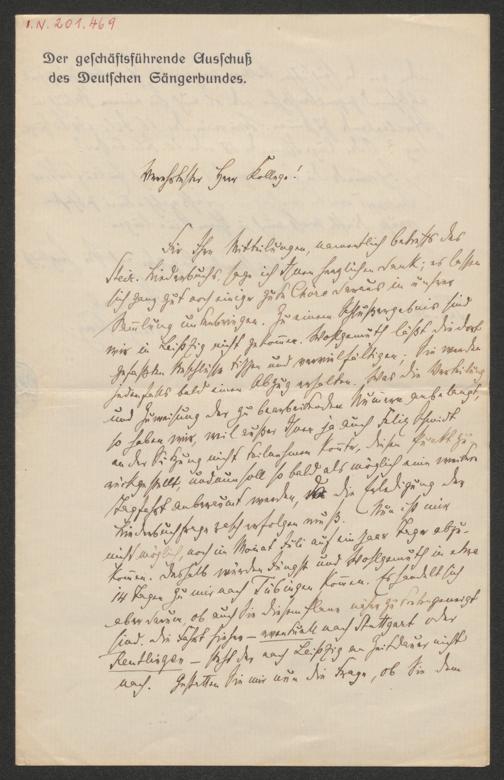 I.N. 201.469
Der geschäftsführende Ausschuß
des Deutschen Sängerbundes.
Verehrtester Herr Kollege!
Für Ihre Mitteilungen, namentlich betreffs des
Steir. Liederbuchs, sage ich Ihnen herzlichen Dank; es lassen
sich ganz gut noch einige gute Chöre daraus in unsrer
Sammlung unterbringen. Zu einem Schlußergebnis sind
wir in Leipzig nicht gekommen. Wohlgemuth läßt die dort
gefaßten Beschlüsse tippen und vervielfältigen; Sie werden
jedenfalls bald einen Abzug erhalten. Was die Verteilung
und Zuweisung der zu bearbeitenden Nummern anbelangt,
so haben wir, weil außer Ihnen ja auch Felix Schmidt
an der Sitzung nicht teilnehmen konnte, diesen Punkt zu-
rückgestellt, und nun soll so bald als möglich eine weitere
Tagfahrt anberaumt werden, da die Erledigung der
Liederbuchfrage rasch erfolgen muß. Nun ist mir
nicht möglich, noch im Monat Juli auf ein paar Tage abzu-
kommen. Deshalb würden Jüngst und Wohlgemuth in etwa
14 Tagen zu mir nach Tübingen kommen. Es handelt sich
aber darum, ob auch Sie diesem Plane näher zu treten geneigt
sind. Die Fahrt hieher – eventuell nach Stuttgart oder
Reutlingen – steht der nach Leipzig an Zeitdauer nicht
nach. Gestatten Sie mir nun die Frage, ob Sie dem